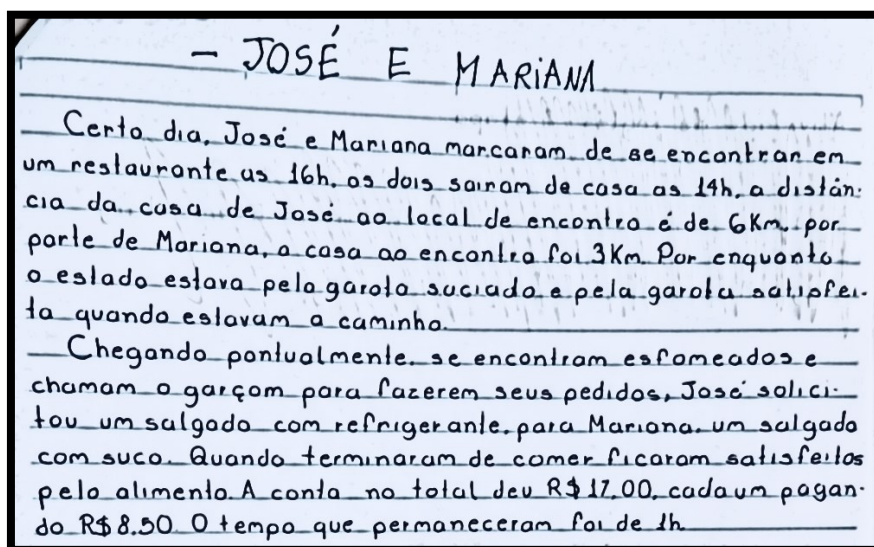 - JOSÉ E MARIANA
Certo dia, José e Mariana marcaram de se encontran em
um restaurante as 16h, os dois sairam de casa as 14h, a distân-
cia da casa de José ao local de encontro é de 6Km, por
parte de Mariana, a casa ao encontro foi 3Km. Por enquanto
o estado estava pelo garoto suciado e pela garota satisfei-
ta quando estavam a caminho.
Chegando pontualmente, se encontram esfomeados e
chamam o garçom para fazerem seus pedidos, José solici-
tou um salgado com refrigerante, para Mariana, um salgado
com suco. Quando terminaram de comer ficaram satisfeitos
pelo alimento. A conta no total deu R$ 17,00, cada um pagan-
do R$ 8.50. O tempo que permaneceram foi de 1h